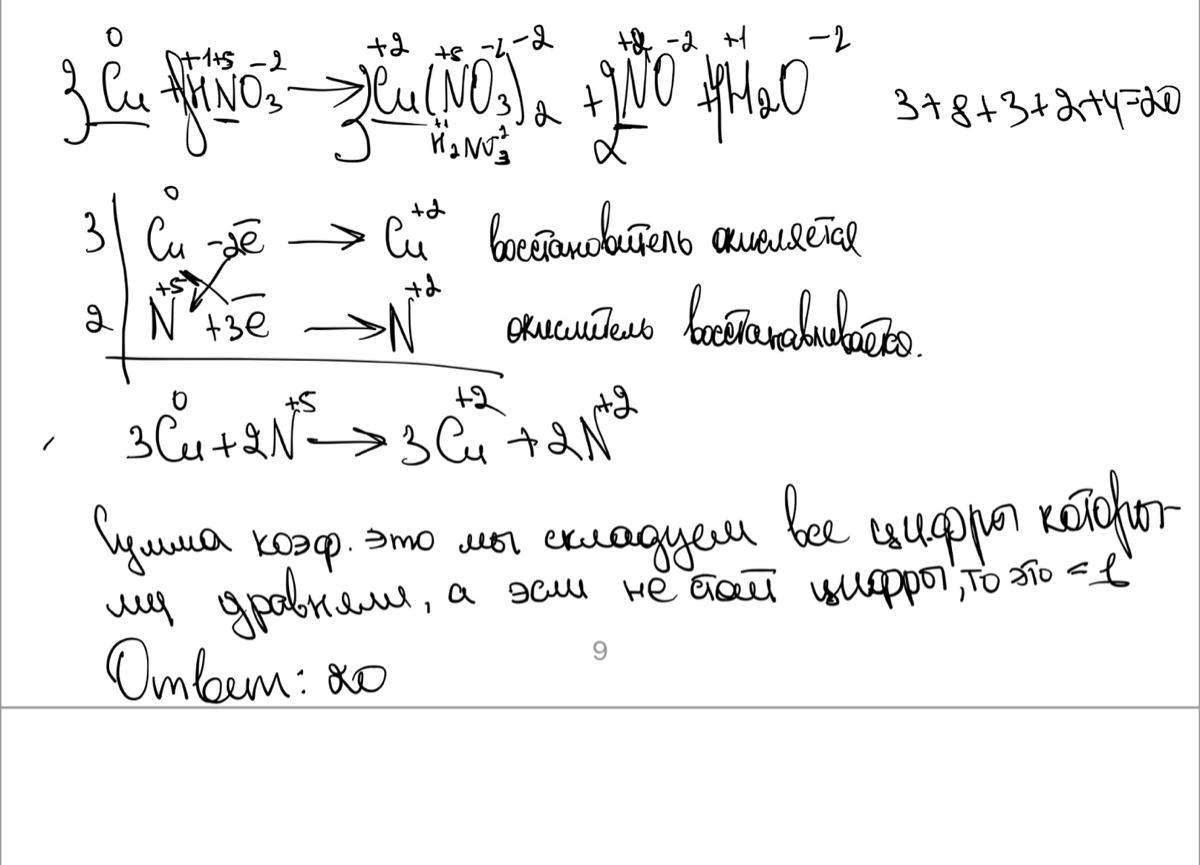 3Cu⁰ + 8H⁺¹N⁺⁵O₃⁻² → 3Cu⁺²(N⁺⁵O₃⁻²)₂ + 2N⁺²O⁻² + 4H₂⁺¹O⁻² 3+8+3+2+4=20
3 | Cu⁰ -2e̅ → Cu⁺² восстановитель окисляется
2 | N⁺⁵ +3e̅ → N⁺² окислитель восстанавливается.
3Cu⁰ + 2N⁺⁵ → 3Cu⁺² + 2N⁺²
Сумма коэф. это мы складуем все цифры которы-
ми уравняли, а если не стоит цифры, то это = 1
Ответ: 20
9